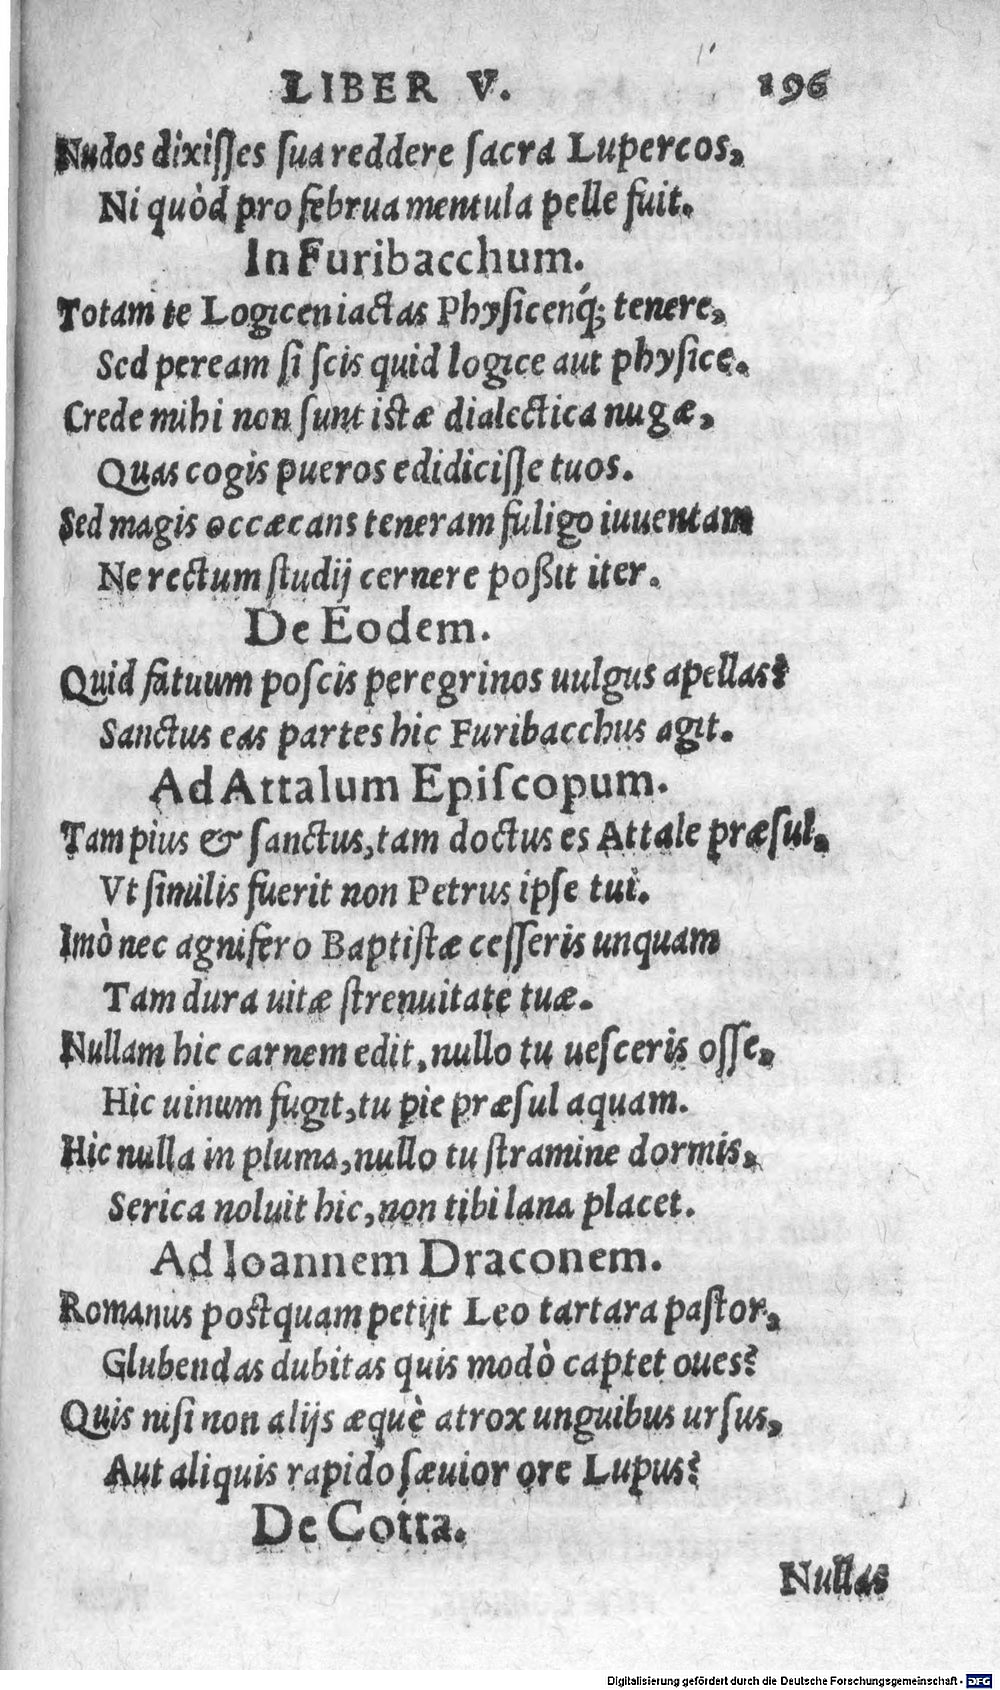 LIBER V. 196
Nudos dixiſſes ſua reddere ſacra Lupercos,
Ni quòd pro februa mentula pelle fuit.
In Furibacchum.
Totam te Logicen iactas Phyſicenq́; tenere,
Sed peream ſi ſcis quid logice aut phyſice.
Crede mihi non ſunt iſtæ dialectica nugæ,
Quas cogis pueros edidiciſſe tuos.
Sed magis occæcans teneram fuligo iuuentam
Ne rectum ſtudij cernere poßit iter.
De Eodem.
Quid fatuum poſcis peregrinos uulgus apellas?
Sanctus eas partes hic Furibacchus agit.
Ad Attalum Epiſcopum.
Tam pius & ſanctus, tam doctus es Attale præſul,
Vt ſimilis fuerit non Petrus ipſe tui.
Imò nec agnifero Baptiſtæ ceſſeris unquam
Tam dura uitæ ſtrenuitate tuæ.
Nullam hic carnem edit, nullo tu ueſceris oſſe,
Hic uinum fugit, tu pie præſul aquam.
Hic nulla in pluma, nullo tu ſtramine dormis,
Serica noluit hic, non tibi lana placet.
Ad Ioannem Draconem.
Romanus poſtquam petijt Leo tartara paſtor,
Glubendas dubitas quis modò captet oues?
Quis niſi non alijs æquè atrox unguibus urſus,
Aut aliquis rapido ſæuior ore Lupus?
De Cotta.
Nullas
Digitalisierung gefördert durch die Deutsche Forschungsgemeinschaft - DFG